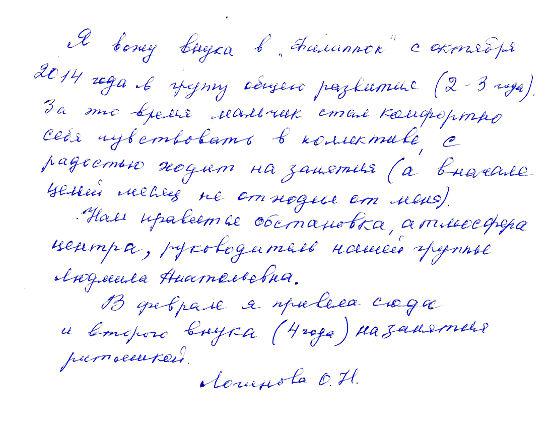 Я вожу внука в „Филиппок" с октября
2014 года в групу общего развития (2-3 года).
За это время мальчик стал комфортно
себя чувствовать в коллективе, с
радостью ходит на занятия (а вначале
целый месяц не отходил от меня).
Нам нравятся обстановка, атмосфера
центра, руководитель нашей группы
Людмила Анатольевна.
В феврале я привела сюда
и второго внука (4 года) на занятия
ритмикой.
Логинова О.Н.